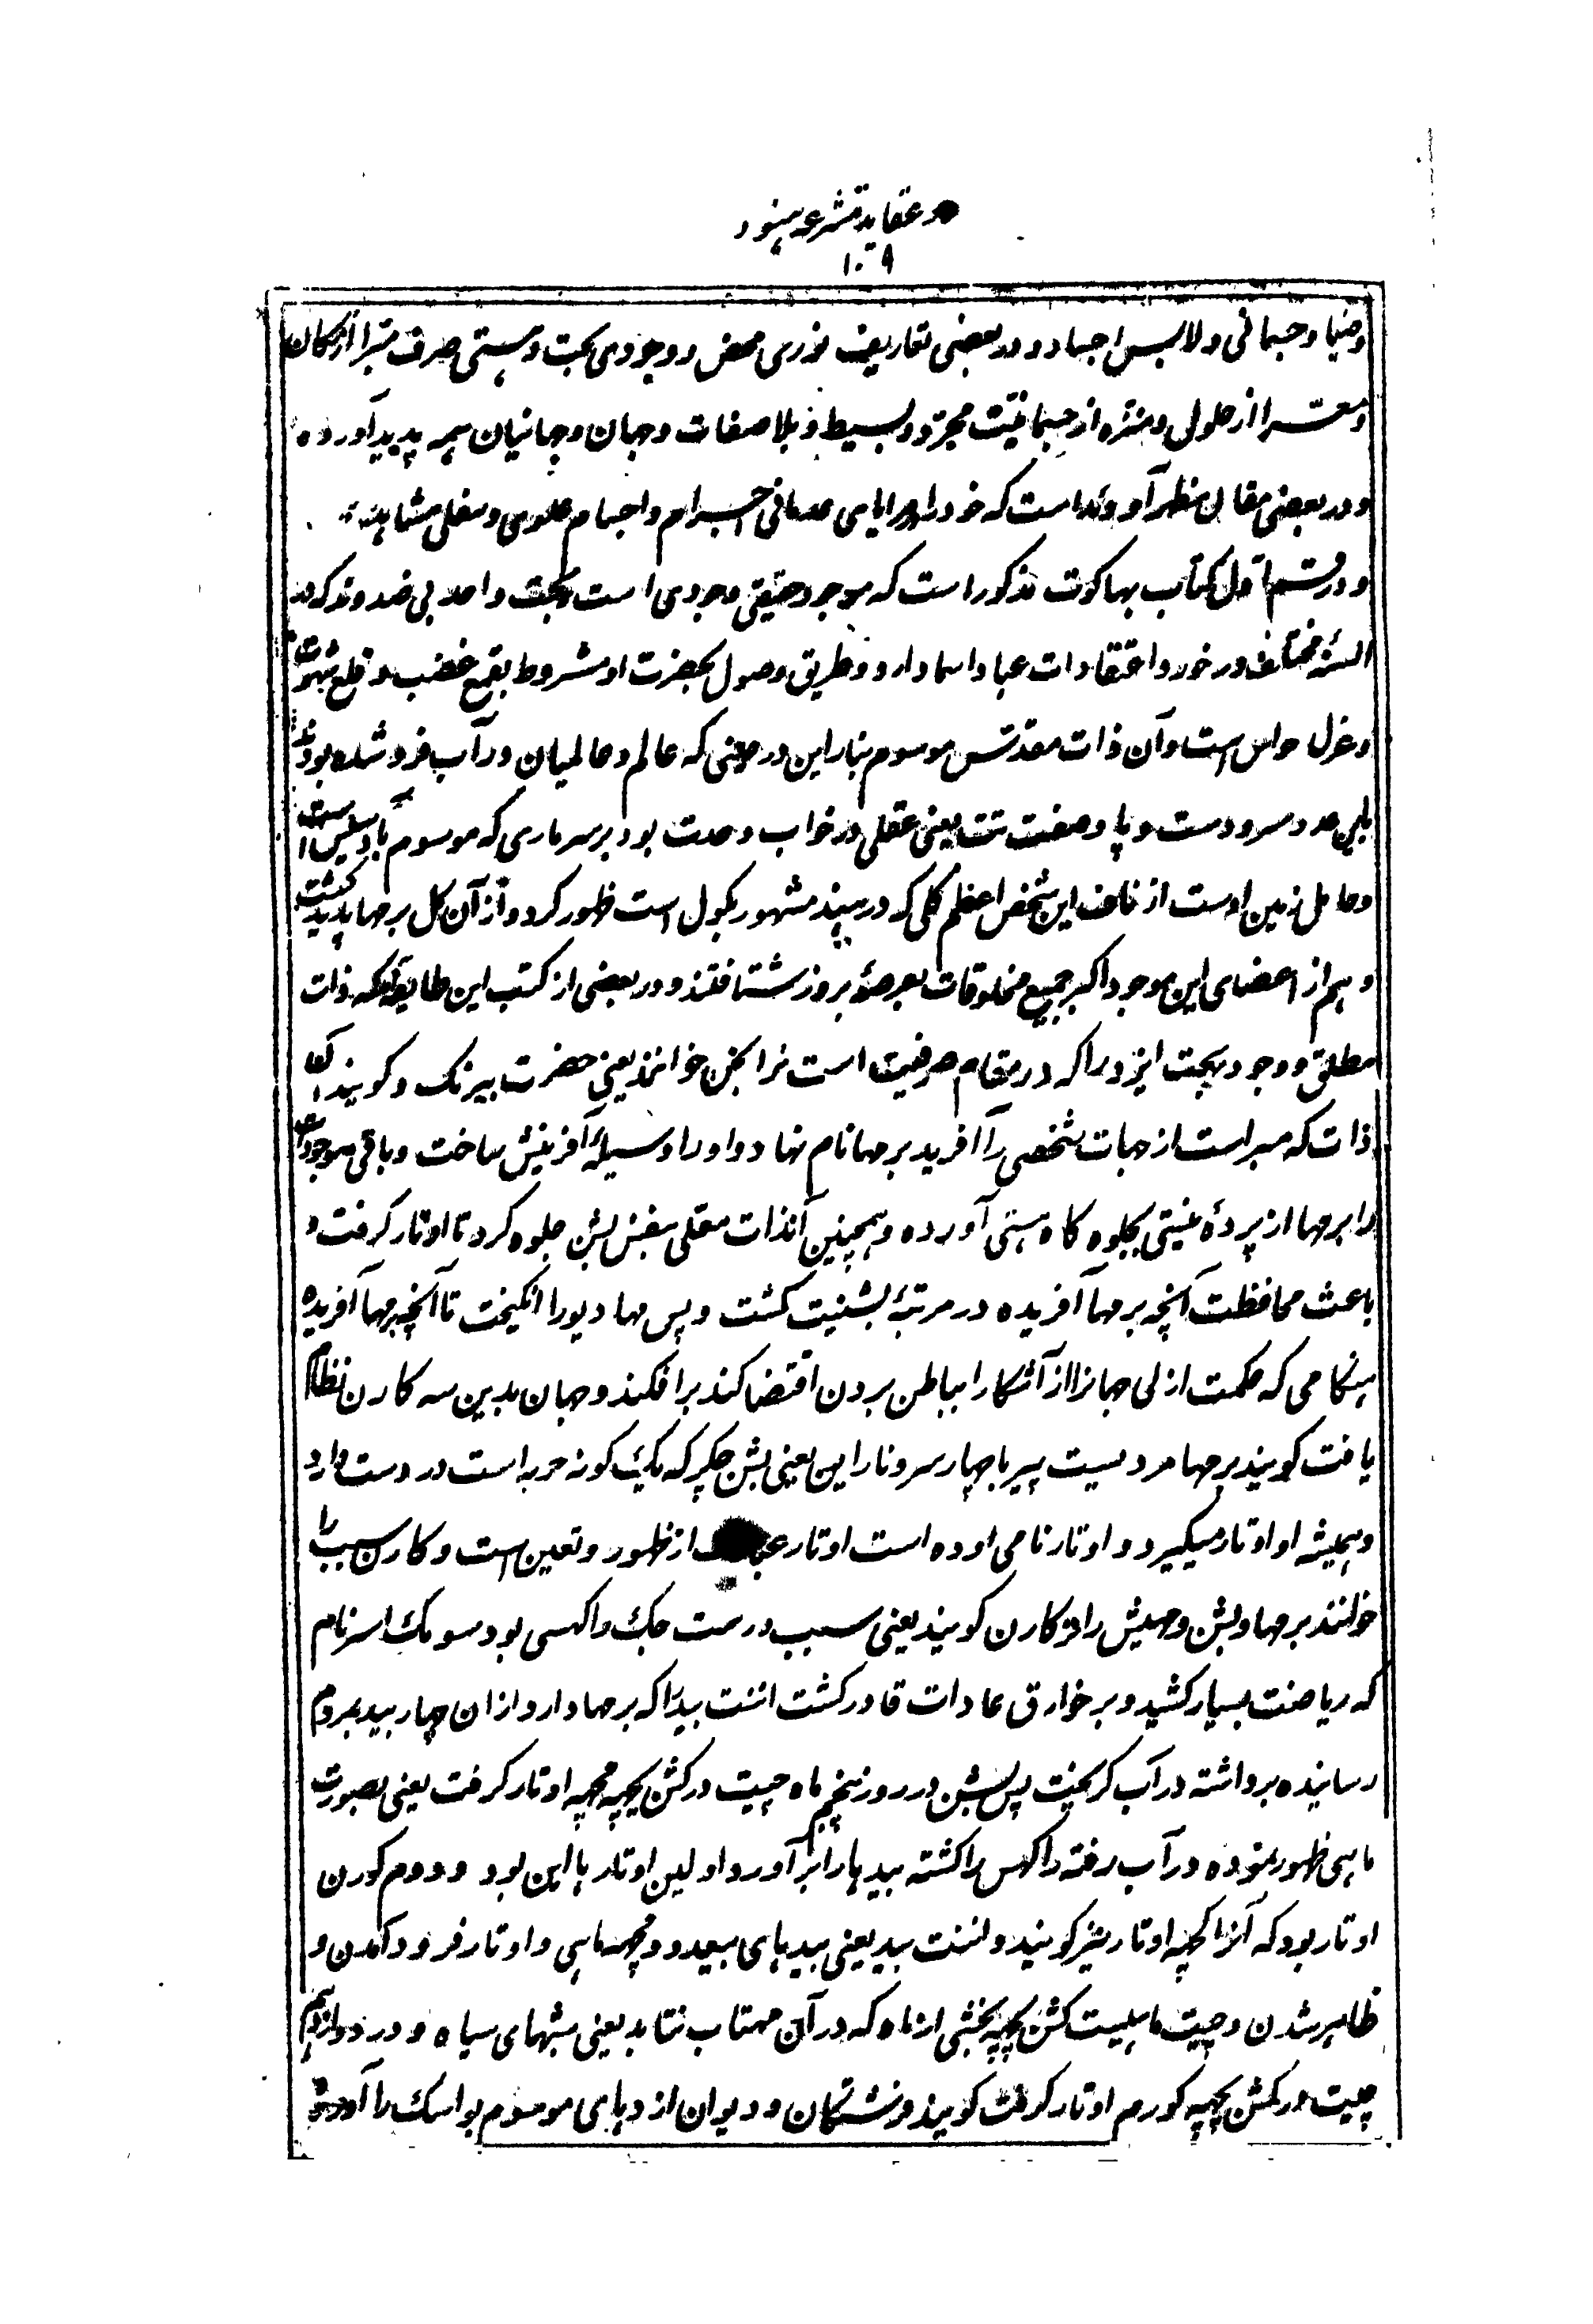 در عقاید متشرعه هنود
۱۰۹
وضیا و جسمانی و لابس اجساد و در بعضی تعاریف نوری محض و وجودی بحت و هستی صرف مبرا از مکان
و معرا از حلول و منزه از جسمانیت مجرد و بسیط و بلا صفات و جهان و جهانیان همه پدید آورده
و در بعضی مقال بنظر آورده است که خود را در مرایای اجرام و اجسام علوی و سفلی مشاهده
و در قسم اول کتاب بهاکوت مذکور است که موجود حقیقی وجودی است بحت و احد بی ضد و ند که در
السنهٔ مختلف در خور و اعتقادات عباد اسما دارد و طریق وصول بحضرت او مشروط بقمع غضب و قلع شهوت
و عزل حواس است و آن ذات مقدس موسوم بناراین در حینی که عالم و عالمیان در آب فرو شده بود
باین سر و دست و پا و صفت ست یعنی عقلی در خواب وحدت بود بر سر ماری که موسوم بآدسیس است
و حامل زمین اوست از ناف این شخص اعظم گلی که در هند مشهور بکول است ظهور کرد و از آن کل برهما پدید گشت
و هم از اعضای این موجود اکبر جمیع مخلوقات بعرصهٔ بروز شتافتند و در بعضی از کتب این طایفه که ذات
مطلق و وجود بحت ایزد را که در مقام صرفیت است نرانجن خوانند یعنی حضرت بیرنگ و گویند
ذات که مبراست از جهات شخصی را آفرید برهما نام نهاد و او را وسیلهٔ آفرینش ساخت و باقی موجودات
را برهما از پردهٔ نیستی بجلوه گاه هستی آورده و همچنین آنذات معلی بنفس بشن جلوه کرد تا اوتار گرفت و
باعث محافظت آنچه برهما آفریده در مرتبهٔ بشنیت گشت و پس مهادیو را انگیخت تا آنچه برهما آفریده
هنگامی که حکمت ازلی جهانرا از آشکارا بباطن بردن اقتضا کند بر افکند و جهان بدین سه کارن نظام
یافت گویند برهما مردیست پیر با چهار سر و ناراین یعنی بشن چکر که یک گونه حربه است در دست دارد
و همیشه او اوتار میگیرد و اوتار نامی او ده است اوتار از ظهور و تعین است و کارن سبب را
خوانند برهما و بشن و مهیش را تر کارن گویند یعنی سبب در ست جگ راکهسی بود سومک اسر نام
که ریاضت بسیار کشید و بر خوارق عادات قادر گشت اننت بید را که برهما دارد از ان چهار بید بمردم
رسانیده برداشته در آب گریخت پس بشن در روز پنجم ماه چیت در کشن پچهه مچهه اوتار گرفت یعنی بصورت
ماهی ظهور نموده در آب رفته راکهس را کشته بیدها را برآورد اولین اوتارها این بود و دوم کورن
اوتار بود که آنرا کچهه اوتار نیز گویند و اننت بید یعنی بیدهای بیعدد و مچهه ماهی و اوتار فرود آمدن و
ظاهر شدن و چیت ماهیست کشن پچهه بخشی از ماه که در آن مهتاب نتابد یعنی شبهای سیاه و در دوازدهم
چیت در کشن پچهه کورم اوتار گرفت گویند فرشتگان و دیوان اژدهای موسوم بواسک را آورده